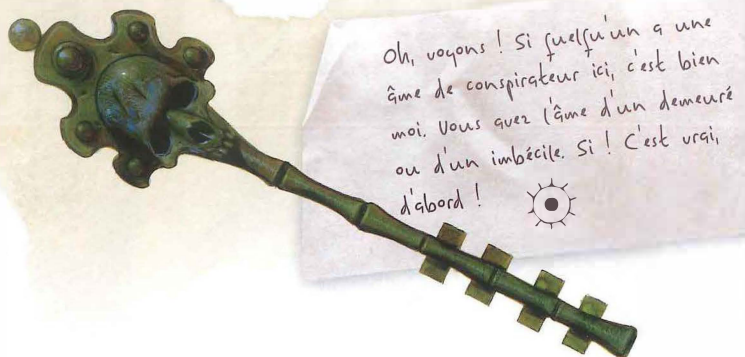 Oh, voyons ! Si quelqu'un a une
âme de conspirateur ici, c'est bien
moi. Vous avez l'âme d'un demeuré
ou d'un imbécile. Si ! C'est vrai,
d'abord !